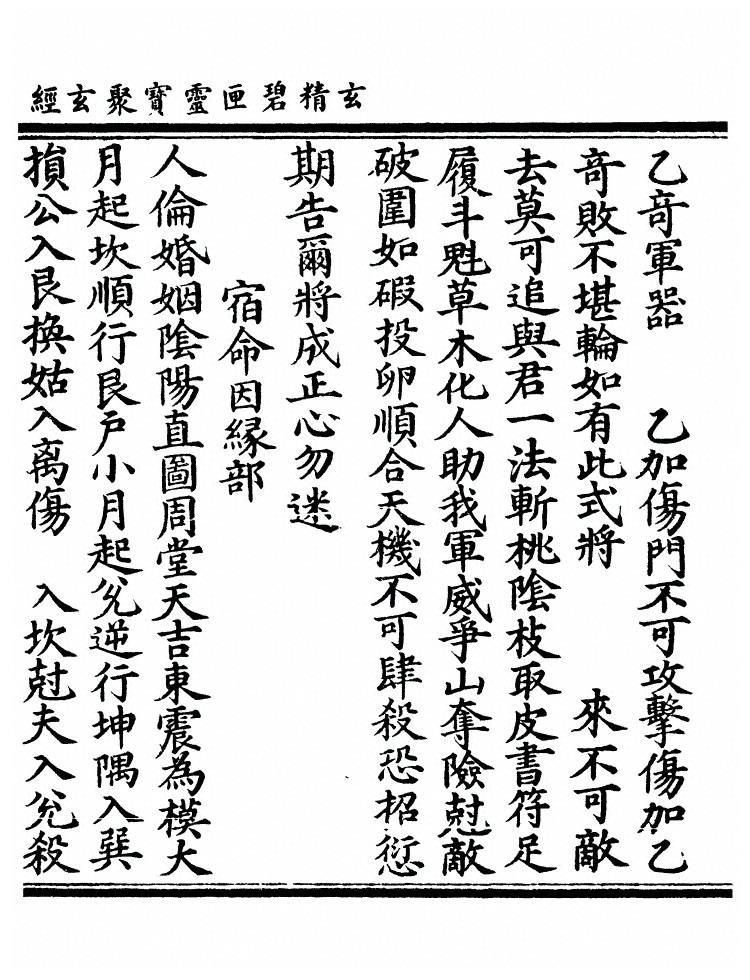 玄精碧匣靈寶聚玄經
乙竒軍器　乙加傷門不可攻擊傷加乙
竒敗不堪輪如有此式將　來不可敵
去莫可追與君一法斬桃陰枝取皮書符足
履斗魁草木化人助我軍威爭山奪險尅敵
破圍如碬投卵順合天機不可肆殺恐招愆
期告爾將成正心勿迷
宿命因緣部
人倫婚姻陰陽直圖周堂天吉東震為模大
月起坎順行艮戶小月起兌逆行坤隅入巽
損公入艮換姑入离傷　入坎尅夫入兌殺